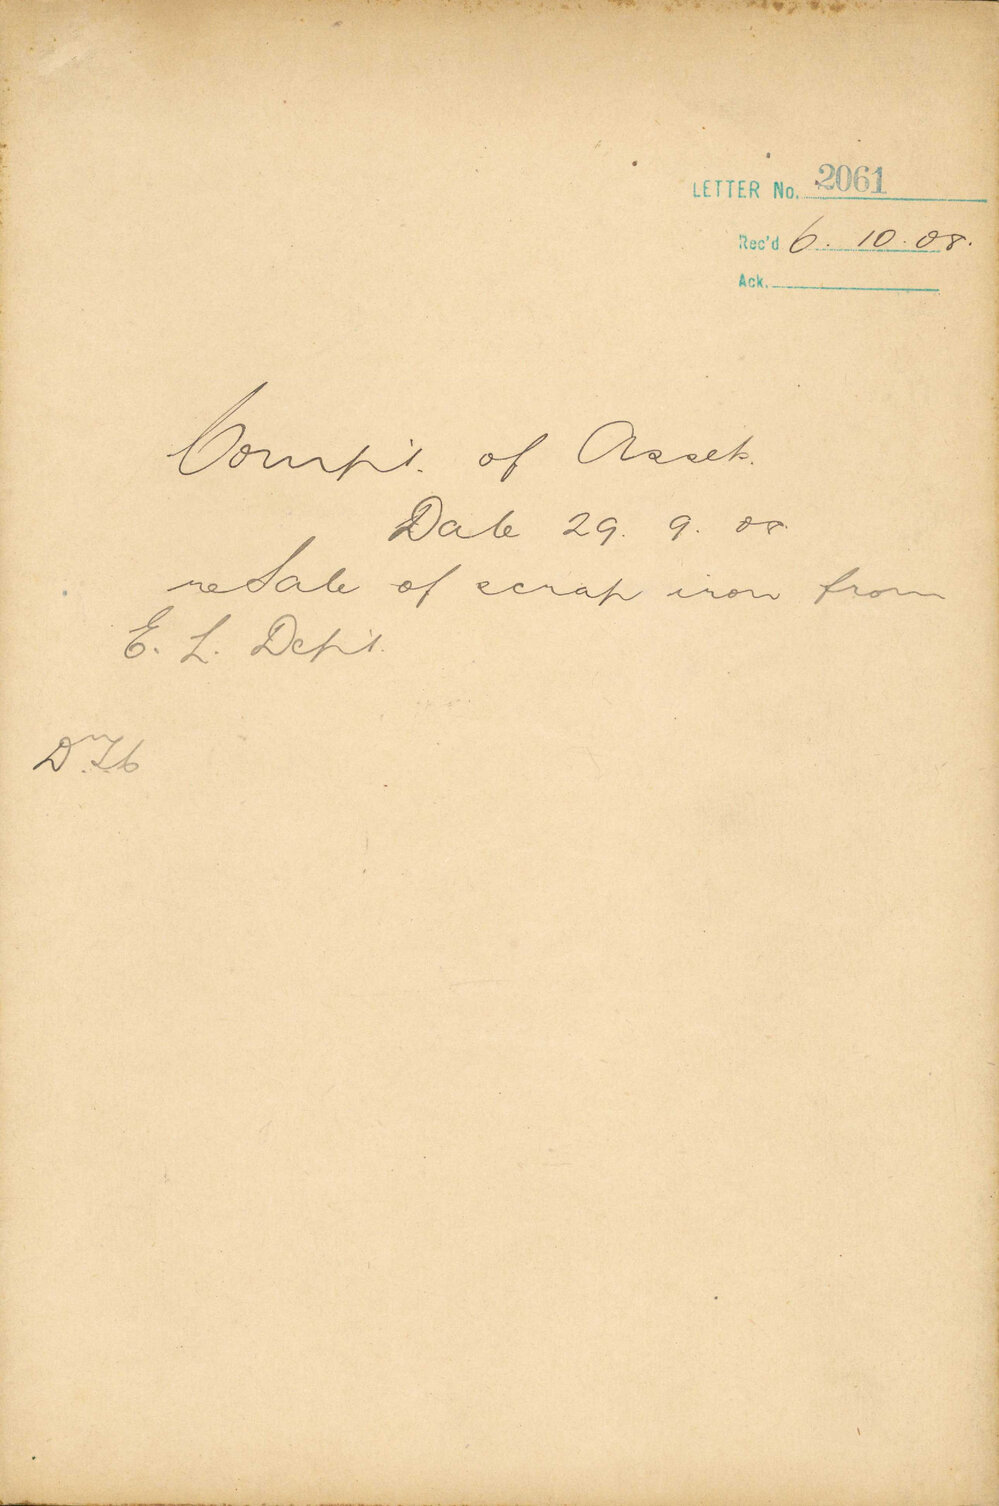 LETTER No. 2061
Rec'd 6. 10. 08.
Ack.
Compt. of Assets.
Date 29. 9. 08
re Sale of scrap iron from
E. L. Dept.